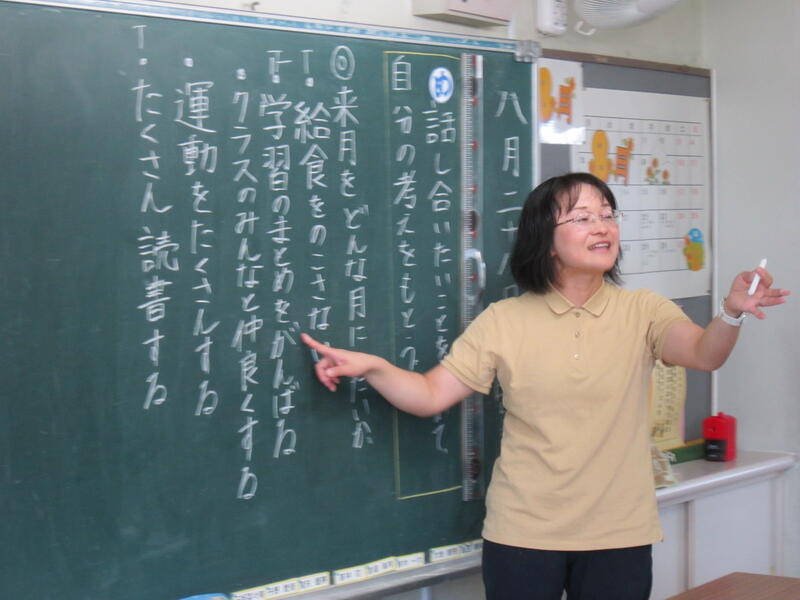 八月二十八日
め 話し合いたいことを て
自分の考えをもとう
◎来月をどんな月に たいか
T・給食をのこさない
T・学習のまとめをがんばる
・クラスのみんなと仲良くする
・運動をたくさんする
T・たくさん読書する